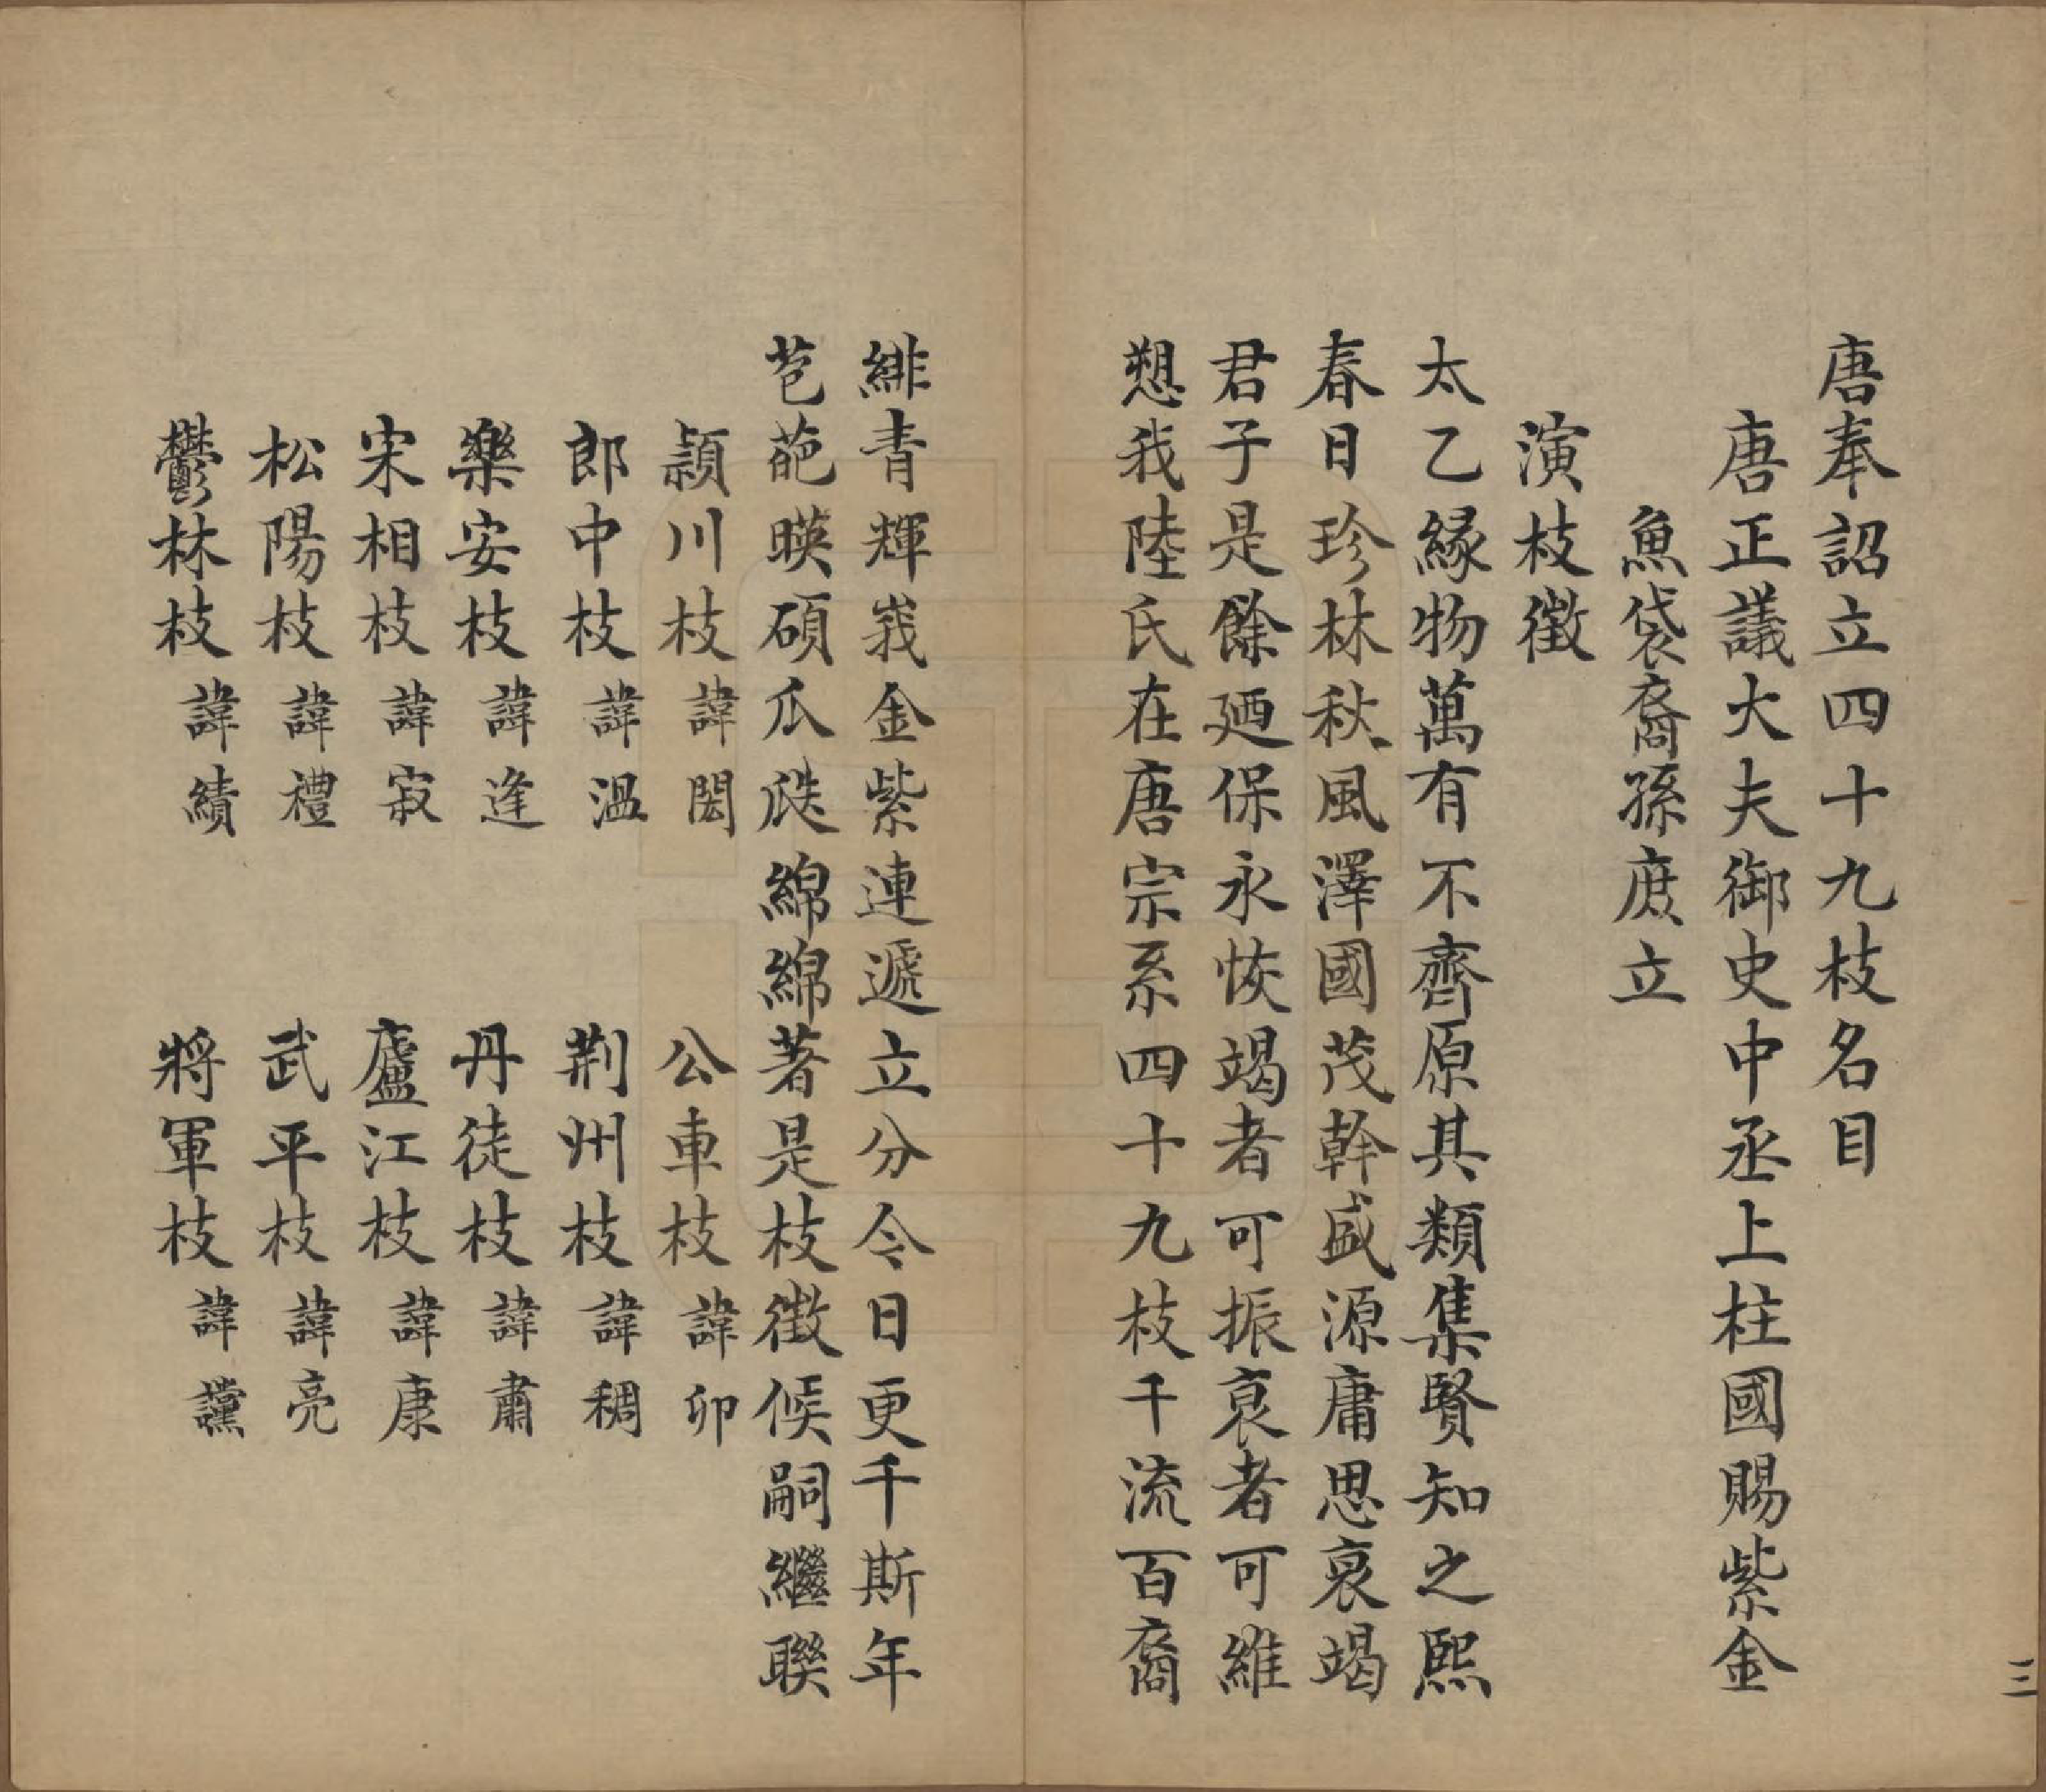 唐奉詔立四十九枝名目
唐正議大夫御史中丞上柱國賜紫金
魚袋裔孫庶立
演枝徵
太乙緣物萬有不齊原其類集賢知之熙
春日珍林秋風澤國茂幹盛源庸思哀竭
君子是餘廼保永恢竭者可振哀者可維
愬我陸氏在唐宗系四十九枝千流百裔
緋青輝峩金紫連遞立分令日更千斯年
芭葩暎碩瓜瓞綿綿著是枝徵候嗣繼聯
潁川枝諱閎 公車枝諱卯
郎中枝諱溫 荆州枝諱稠
樂安枝諱逢 丹徒枝諱肅
宋相枝諱寂 廬江枝諱康
松陽枝諱禮 武平枝諱亮
鬱林枝諱績 將軍枝諱讜
三